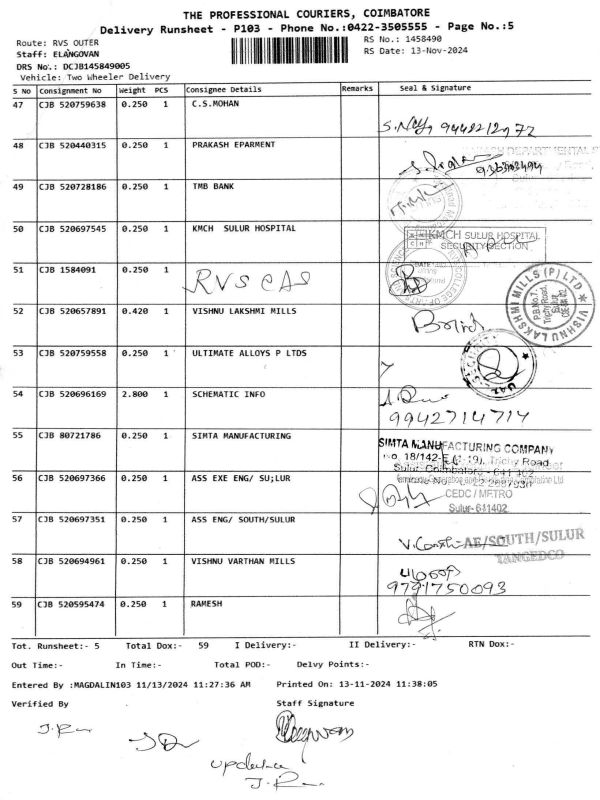 THE PROFESSIONAL COURIERS, COIMBATORE
Delivery Runsheet - P103 - Phone No.:0422-3505555 - Page No.:5
Route: RVS OUTER
RS No.: 1458490
Staff: ELANGOVAN
RS Date: 13-Nov-2024
DRS No.: DCJB145849005
Vehicle: Two Wheeler Delivery
S No Consignment No Weight PCS Consignee Details Remarks Seal & Signature
47 CJB 520759638 0.250 1 C.S.MOHAN
48 CJB 520440315 0.250 1 PRAKASH EPARMENT
49 CJB 520728186 0.250 1 TMB BANK
50 CJB 520697545 0.250 1 KMCH SULUR HOSPITAL
KMCH SULUR HOSPITAL
SECURITY SECTION
51 CJB 1584091 0.250 1 RVS CAS
52 CJB 520657891 0.420 1 VISHNU LAKSHMI MILLS
VISHNU LAKSHMI MILLS (P) LTD
P.B.No.7,
Trichy Road
Sulur
53 CJB 520759558 0.250 1 ULTIMATE ALLOYS P LTDS
54 CJB 520696169 2.800 1 SCHEMATIC INFO
9942714714
55 CJB 80721786 0.250 1 SIMTA MANUFACTURING
SIMTA MANUFACTURING COMPANY
No. 18/142-E (1-19), Trichy Road
56 CJB 520697366 0.250 1 ASS EXE ENG/ SU;LUR
CEDC / METRO
Sulur- 641402
57 CJB 520697351 0.250 1 ASS ENG/ SOUTH/SULUR
AE/SOUTH/SULUR
TANGEDCO
58 CJB 520694961 0.250 1 VISHNU VARTHAN MILLS
9791750093
59 CJB 520595474 0.250 1 RAMESH
Tot. Runsheet:- 5 Total Dox:- 59 I Delivery:- II Delivery:- RTN Dox:-
Out Time:- In Time:- Total POD:- Delvy Points:-
Entered By :MAGDALIN103 11/13/2024 11:27:36 AM Printed On: 13-11-2024 11:38:05
Verified By Staff Signature